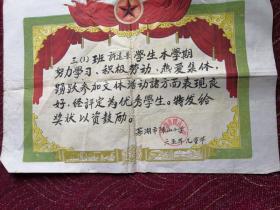 三(1)班 学生本学期
努力学习,积极劳动,热爱集体,
踊跃参加文体活动诸方面表现良
好,经评定为优秀学生。特发给
奖状以资鼓励。
芜湖市 山小学
六五年九月